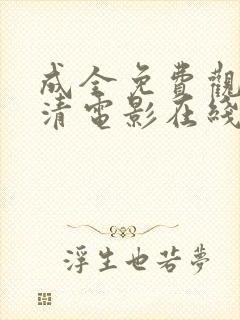 成全免費觀
清電影在綫
浮生也若夢